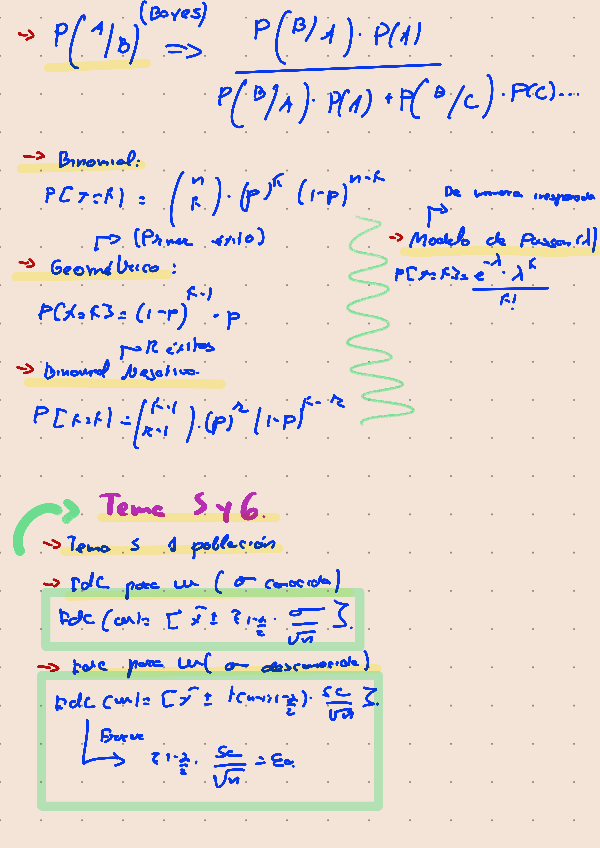 → P(A/B) (Bayes) ⇒ P(B/A) · P(A) / P(B/A) · P(A) + P(B/C) · P(C)...
→ Binomial:
P[x=k] = (n k) · (p)^k (1-p)^n-k
→ (Primer éxito)
→ Geométrico:
P[x=k] = (1-p)^k-1 · p
→ r éxitos
→ Binomial Negativo
P[x=k] = (k-1 r-1) · (p)^r (1-p)^k-r
De manera inesperada
→ Modelo de Poisson (λ)
P[x=k] = e^-λ · λ^k / k!
Tema 5 y 6.
→ Tema 5 1 población
→ IdC para μ (σ conocida)
IdC (μ) = [x̄ ± z 1-α/2 · σ/√n].
→ IdC para μ (σ desconocida)
IdC (μ) = [x̄ ± t(n-1; 1-α/2) · Sc/√n].
→ z 1-α/2 · Sc/√n =